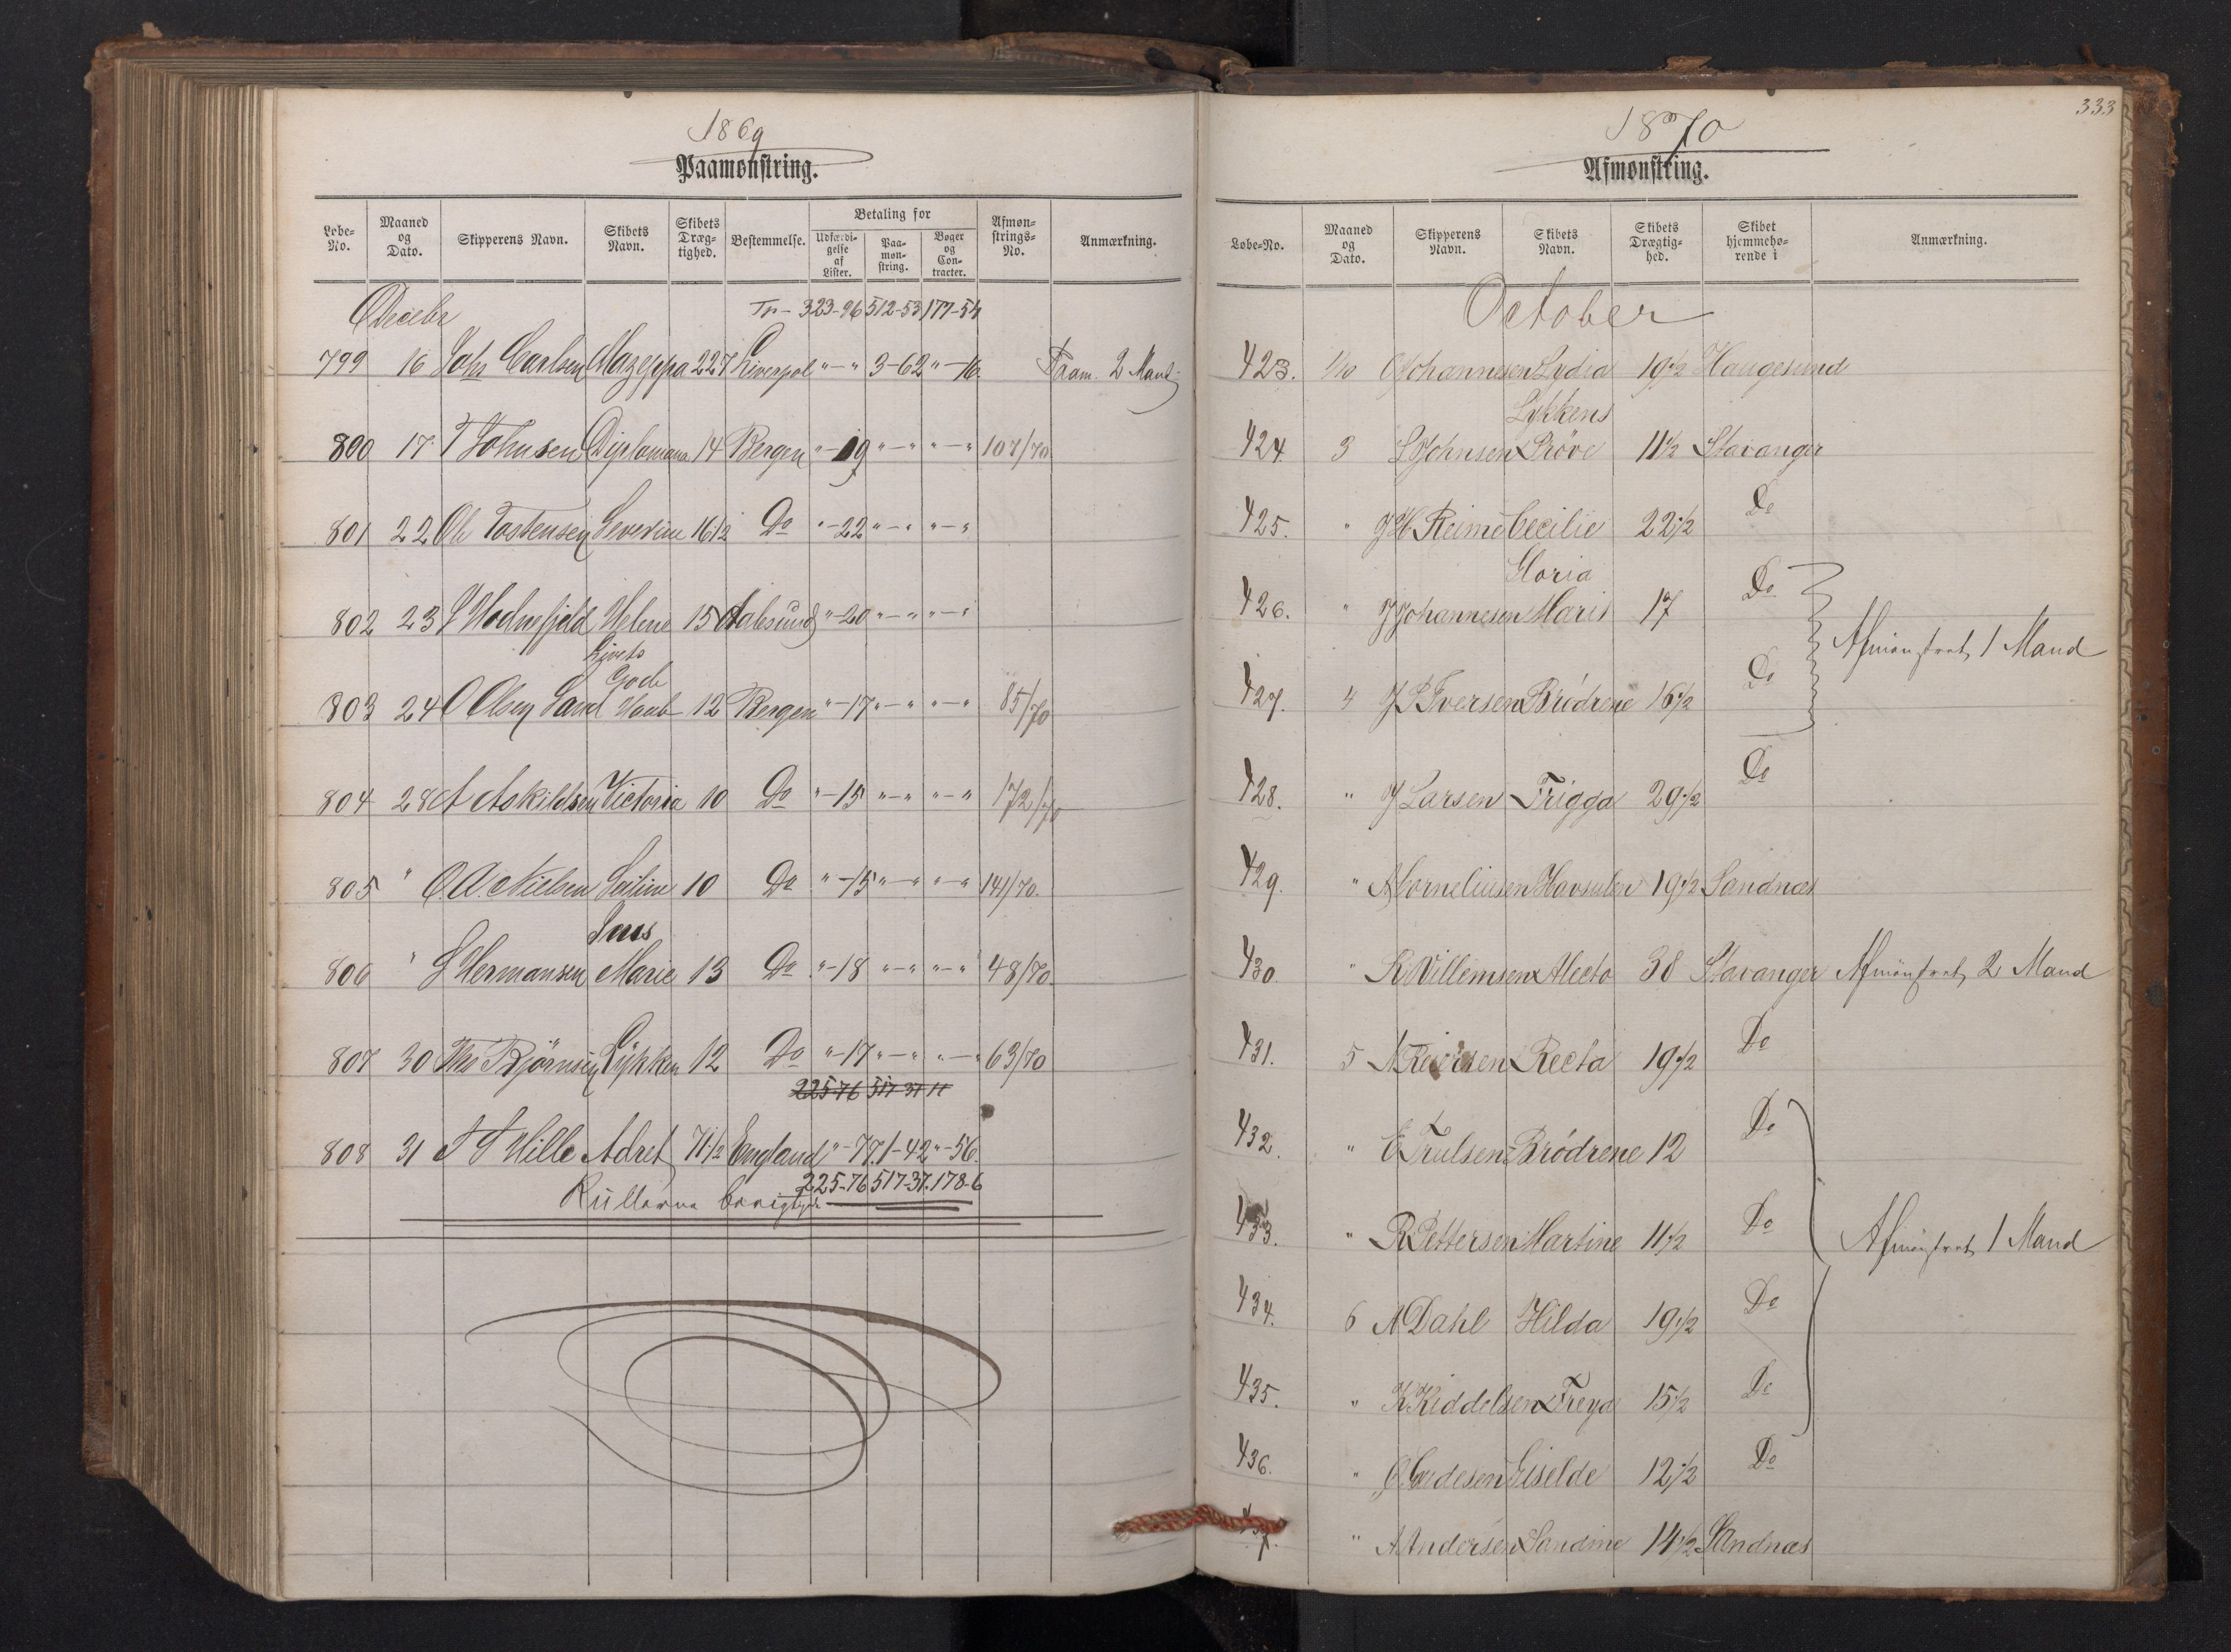 1869
Paamønstring.
Løbe-No. Maaned og Dato. Skipperens Navn. Skibets Navn. Skibets Dræg-tighed. Bestemmelse. Betaling for Udfærdi-gelse af Lister. Paa-møn-string. Bøger og Con-tracter. Afmøn-strings-No. Anmærkning.
Decebr Tr- 323-96 512-53 177-54
799 16 Johs Carlsen Mazeppa 227 Liverpol " - " 3-62 " -16. Paam. 2 Mand
800 17. T Johnsen Diplomana 14 Bergen " -19 " - " " - " 107/70
801 22 Ole Tostensen Severine 16 1/2 Do " -22 " - " " - "
802 23 Hodnefjeld Helene 15 Aalesund " -20 " - " " - "
Livets
Gode
803 24 O Olsen Sand Haab 12 Bergen " -17 " - " " - " 85/70
804 28 A Askildsen Victoria 10 Do " -15 " - " " - " 172/70
805 " O. A. Nielsen 10 Do " -15 " - " " - " 141/70.
Jens
806 " S Hermansen Marie 13 Do " -18 " - " " - " 48/70
807 30 Ths Bjørnsen Lykken 12 Do " -17 " - " " - " 63/70
225-76 517-37 11
808 31 Hille Adret 71 1/2 England " -77. 1-42 " -56.
225-76 517-37. 178-6
Rullerne
1870
333
Afmønstring.
Løbe-No. Maaned og Dato. Skipperens Navn. Skibets Navn. Skibets Drægtig-hed. Skibet hjemmehø-rende i Anmærkning.
October
423. 1/10 O Johannesen Lydia 19 1/2 Haugesund
Lykkens
424. 3 L Johnsen Prøve 11 1/2 Stavanger
425. " J H Reime Cecilie 22 1/2 Do
Gloria
426. " J Johannesen Maris 17 Do
Afmønstret 1 Mand
427. 4 J P Iversen Brødrene 16 1/2 Do
428. " J Larsen Frigga 29 1/2 Do
429. " A Corneliusen Havsulen 19 1/2 Sandnæs
430. " K Villemsen Alecto 38 Stavanger Afmønstret 2 Mand
431. 5 N Reiersen Recta 19 1/2 Do
432. " E Trulsen Brødrene 12 Do
433. " R Pettersen Martine 11 1/2 Do Afmønstret 1 Mand
434. 6 A Dahl Hilda 19 1/2 Do
435. " K Kiddelsen Freya 15 1/2 Do
436. " Giselde 12 1/2 Do
437. " A Andersen Sandine 14 1/2 Sandnæs